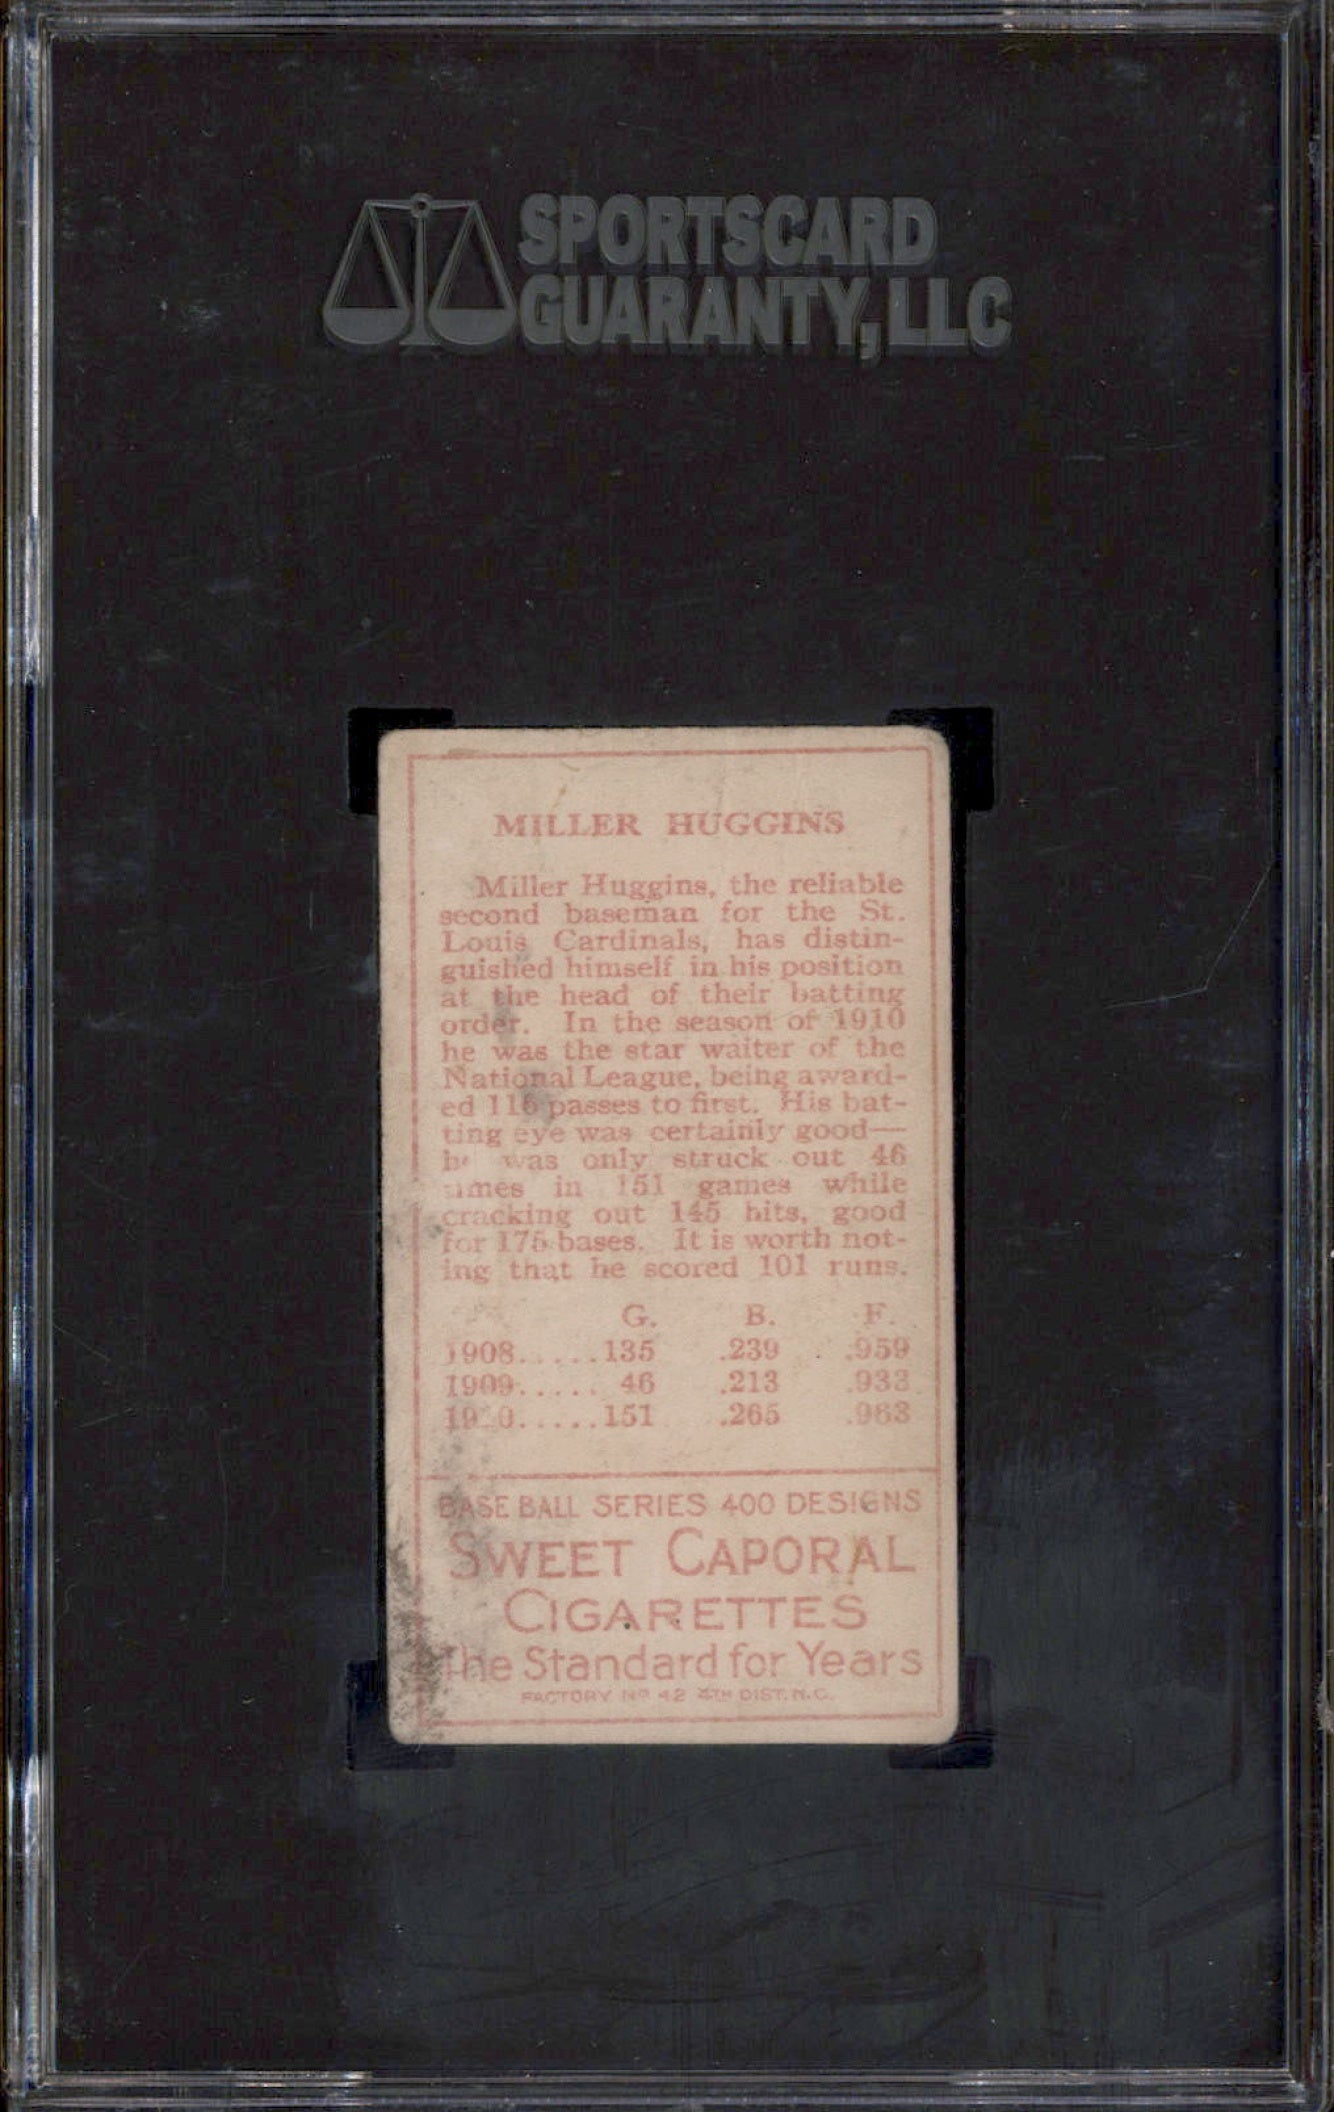 SPORTSCARD
GUARANTY, LLC
MILLER HUGGINS
Miller Huggins, the reliable
second baseman for the St.
Louis Cardinals, has distin-
guished himself in his position
at the head of their batting
order. In the season of 1910
he was the star waiter of the
National League, being award-
ed 116 passes to first. His bat-
ting eye was certainly good—
he was only struck out 46
times in 151 games while
cracking out 145 hits, good
for 175 bases. It is worth not-
ing that he scored 101 runs.
G. B. F.
1908......135 .239 .959
1909...... 46 .213 .933
1910......151 .265 .963
BASE BALL SERIES 400 DESIGNS
SWEET CAPORAL
CIGARETTES
The Standard for Years
FACTORY No 42 4TH DIST. N.C.